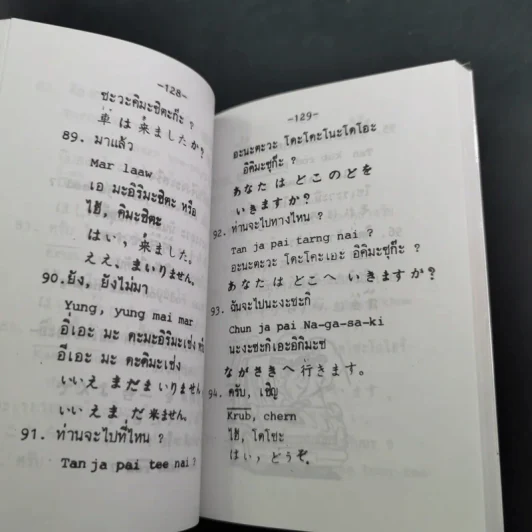 -128-
ซะวะคิมะชิตะก๊ะ ?
車 は 来ましたか?
89. มาแล้ว
Mar laaw
เอ มะอิริมะชิตะ หรือ
ไฮ้, คิมะชิตะ
はい, 来ました。
ええ、まいりません。
90. ยัง, ยังไม่มา
Yung, yung mai mar
อี่เอะ มะ ดะมะอิริมะเซ่ง
อีเอะ มะ ดะคิมะเซ่ง
いいえ まだまいりません
いいえ まだ 来ません。
91. ท่านจะไปที่ไหน ?
Tan ja pai tee nai ?
-129-
อะนะตะวะ โดะโดะโนะโตโอะ
อิคิมะซุก๊ะ ?
あなた は どこ のとを
いきますか?
92. ท่านจะไปทางไหน ?
Tan ja pai tarng nai ?
อะนะตะวะ โดะโคะเอะ อิคิมะซุก๊ะ ?
あなた は どこへ いきますか?
93. ฉันจะไปนะงะซะกิ
Chun ja pai Na-ga-sa-ki
นะงะซะกิเอะอิกิมะซ
ながさきへ 行きます。
94. ครับ, เชิญ
Krub, chern
ไฮ้, โดโซะ
はい, どうぞ.